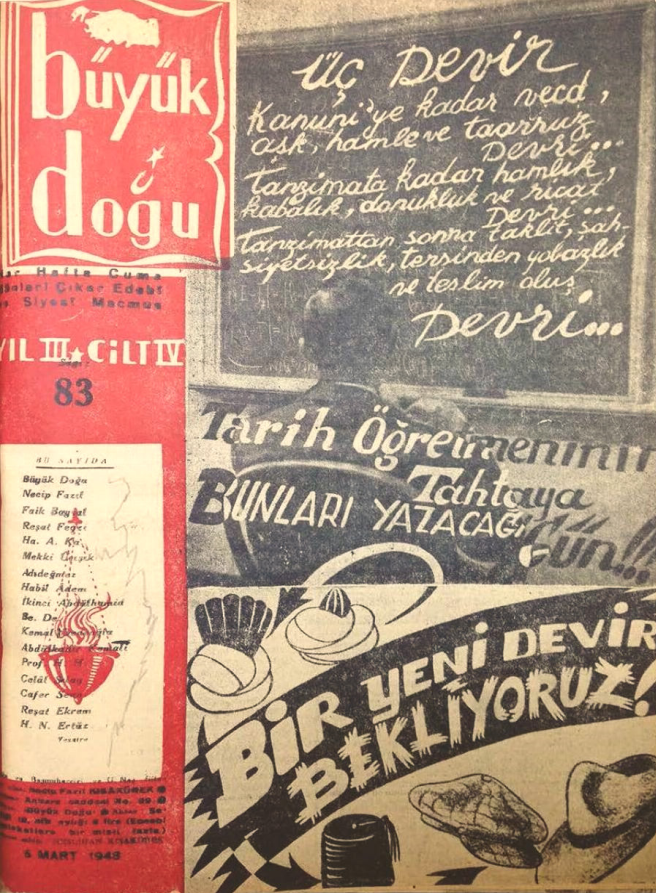 büyük
doğu
Hafta Cuma
Günleri Çıkar Edebî
Siyasî Macmua
YIL III ★ CİLT IV
Sayı:
83
BU SAYIDA
Büyük Doğu
Necip Fazıl
Faik Baysal
Reşat Feyzi
Ha. A. Ka
Mekki
Adıdeğmez
Habil Adem
İkinci Abdülhamid
Be. De
Kemal
Abdülkadir Kemali
Prof. H. H.
Celâl
Cafer
Reşat Ekrem
H. N. Ertüz
Necip Fazıl KISAKÜREK
Ankara caddesi No. 89
Büyük Doğu
bir misli fazla)
KISAKÜREK
5 MART 1948
Üç Devir
Kanunî'ye kadar vecd,
aşk, hamle ve taarruz
Devri...
Tanzimata kadar hamlık,
kabalık, donukluk ve ricat
Devri...
Tanzimattan sonra taklit, şah-
siyetsizlik, tersinden yobazlık
ve teslim oluş
Devri...
Tarih Öğretmeninin
Tahtaya
BUNLARI YAZACAĞI
Gün!!!
BİR YENİ DEVİR
BEKLİYORUZ!